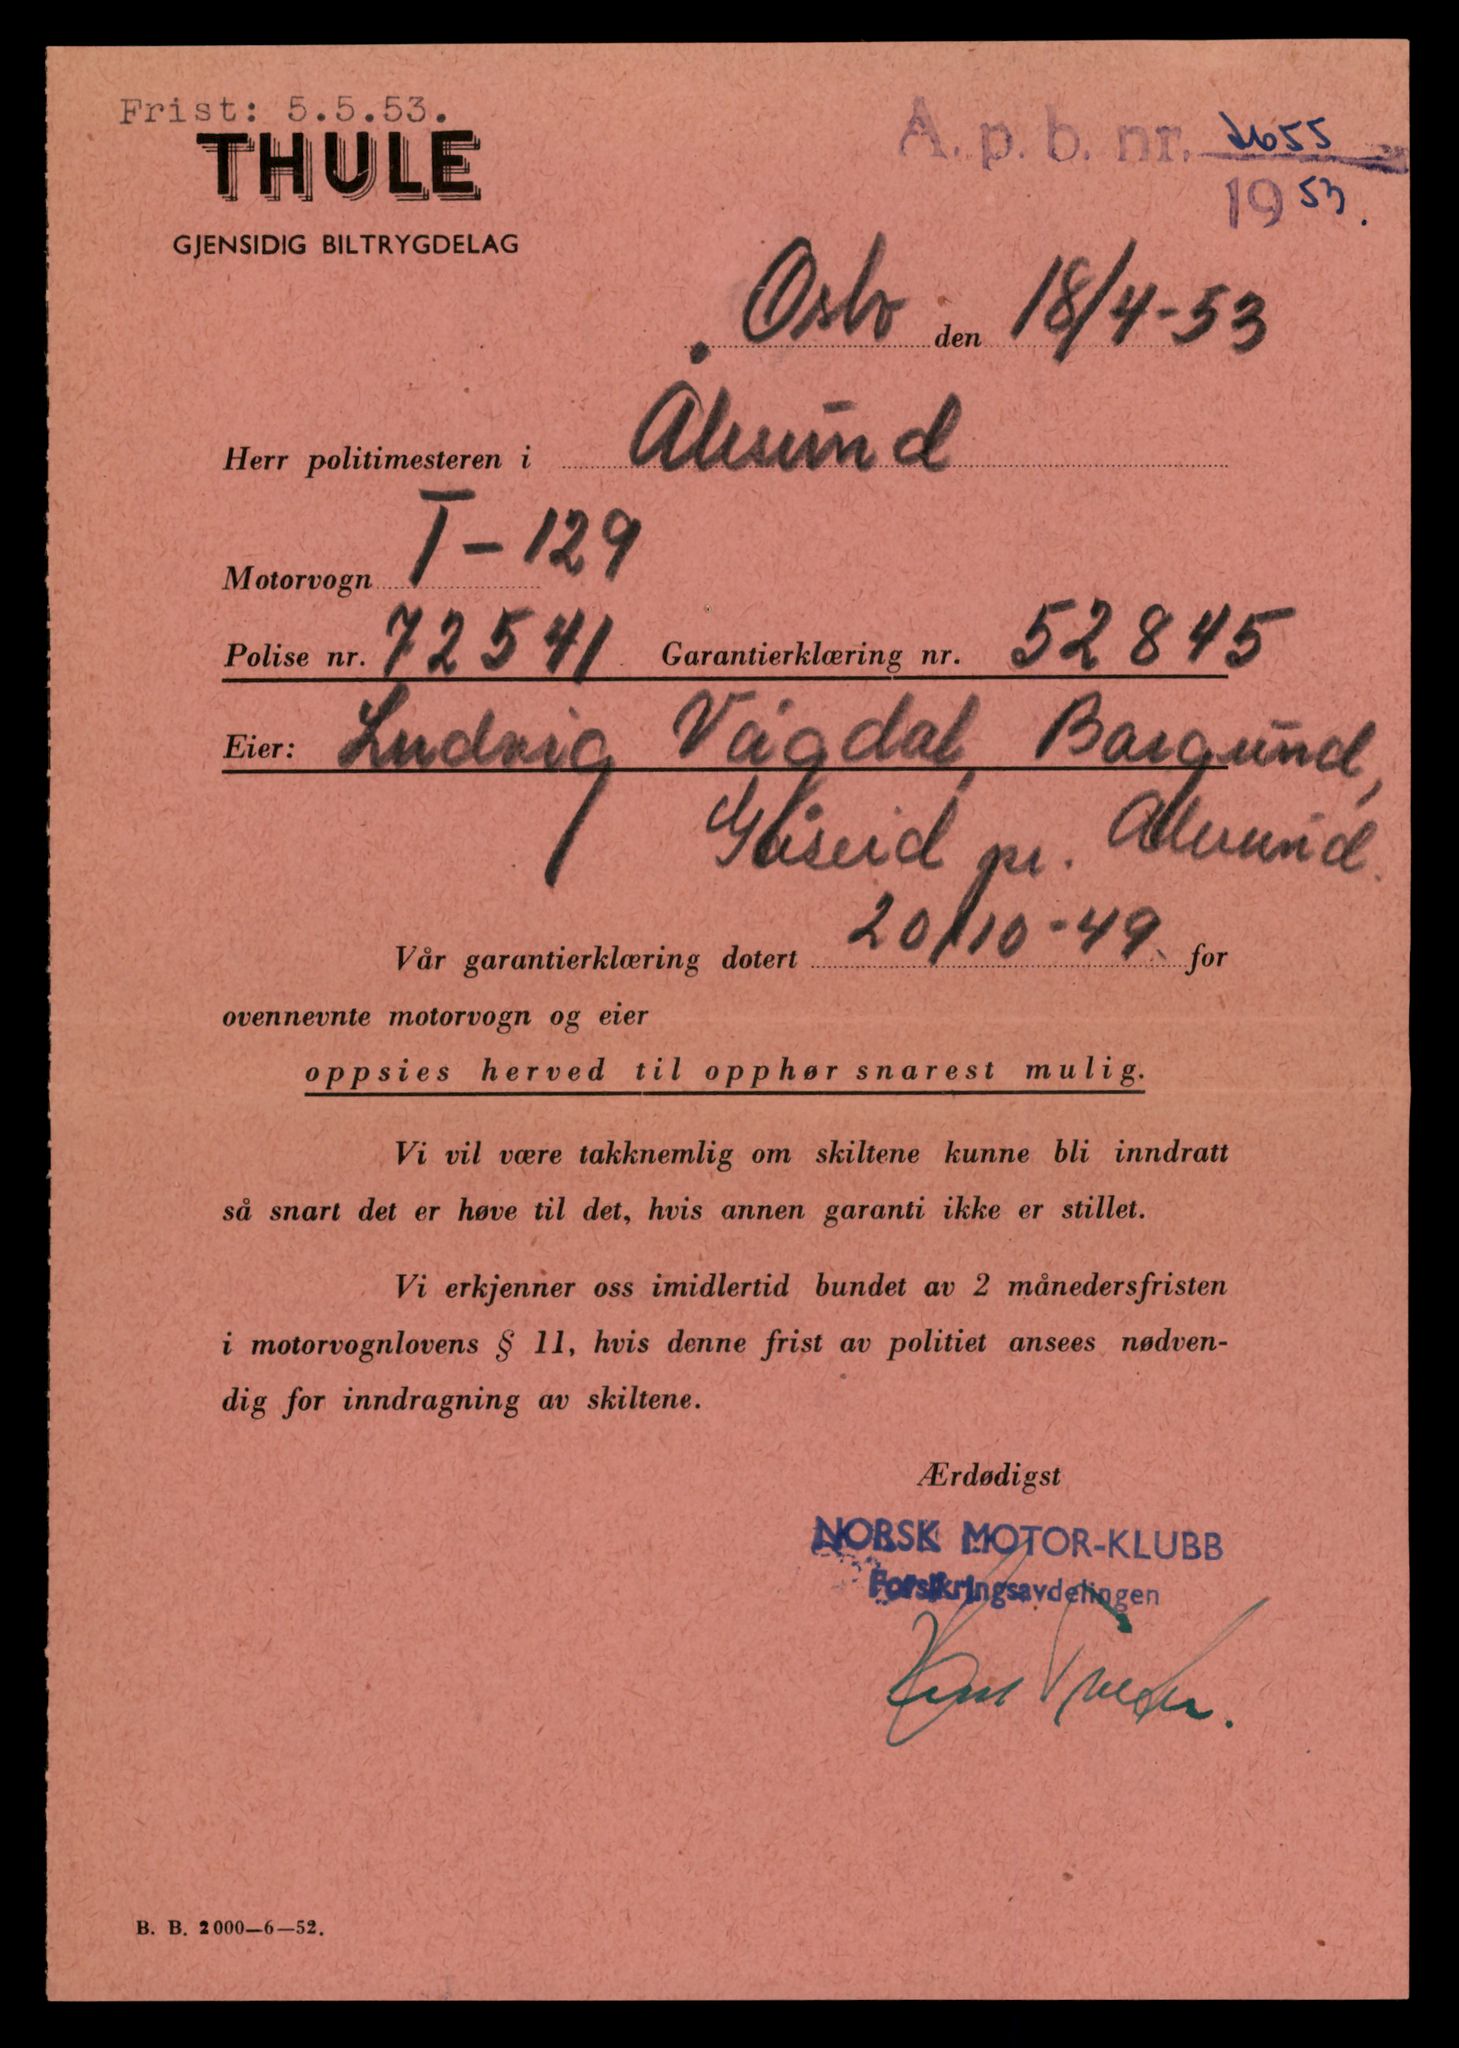 Frist: 5.5.53.
THULE
GJENSIDIG BILTRYGDELAG
A. p. b. nr. 2655
1953.
Oslo den 18/4-53
Herr politimesteren i Ålesund
Motorvogn T-129
Polise nr. 72541 Garantierklæring nr. 52845
Eier: Ludvig Vågdal, Borgund,
Gåseid pr. Ålesund.
Vår garantierklæring dotert 20/10-49 for
ovennevnte motorvogn og eier
oppsies herved til opphør snarest mulig.
Vi vil være takknemlig om skiltene kunne bli inndratt
så snart det er høve til det, hvis annen garanti ikke er stillet.
Vi erkjenner oss imidlertid bundet av 2 månedersfristen
i motorvognlovens § 11, hvis denne frist av politiet ansees nødven-
dig for inndragning av skiltene.
Ærdødigst
NORSK MOTOR-KLUBB
Forsikringsavdelingen
B. B. 2000—6—52.